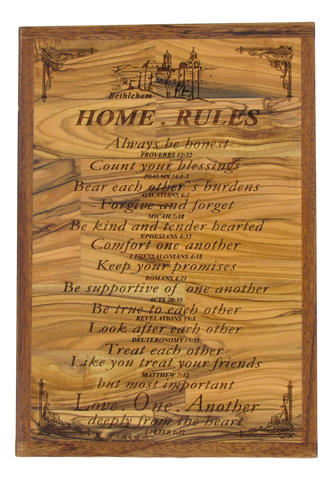 Bethlehem
HOME . RULES
Always be honest
PROVERBS 12:22
Count your blessings
PSALMS 34:1-3
Bear each other's burdens
GALATIANS 6:2
Forgive and forget
MICAH 7:18
Be kind and tender hearted
EPHESIANS 4:32
Comfort one another
1 THESSALONIANS 4:18
Keep your promises
ROMANS 4:21
Be supportive of one another
ACTS 20:35
Be true to each other
REVELATIONS 15:3
Look after each other
DEUTERONOMY 15:11
Treat each other
Like you treat your friends
MATTHEW 7:12
but most important
Love . One . Another
deeply from the heart
1 PETER 1:22